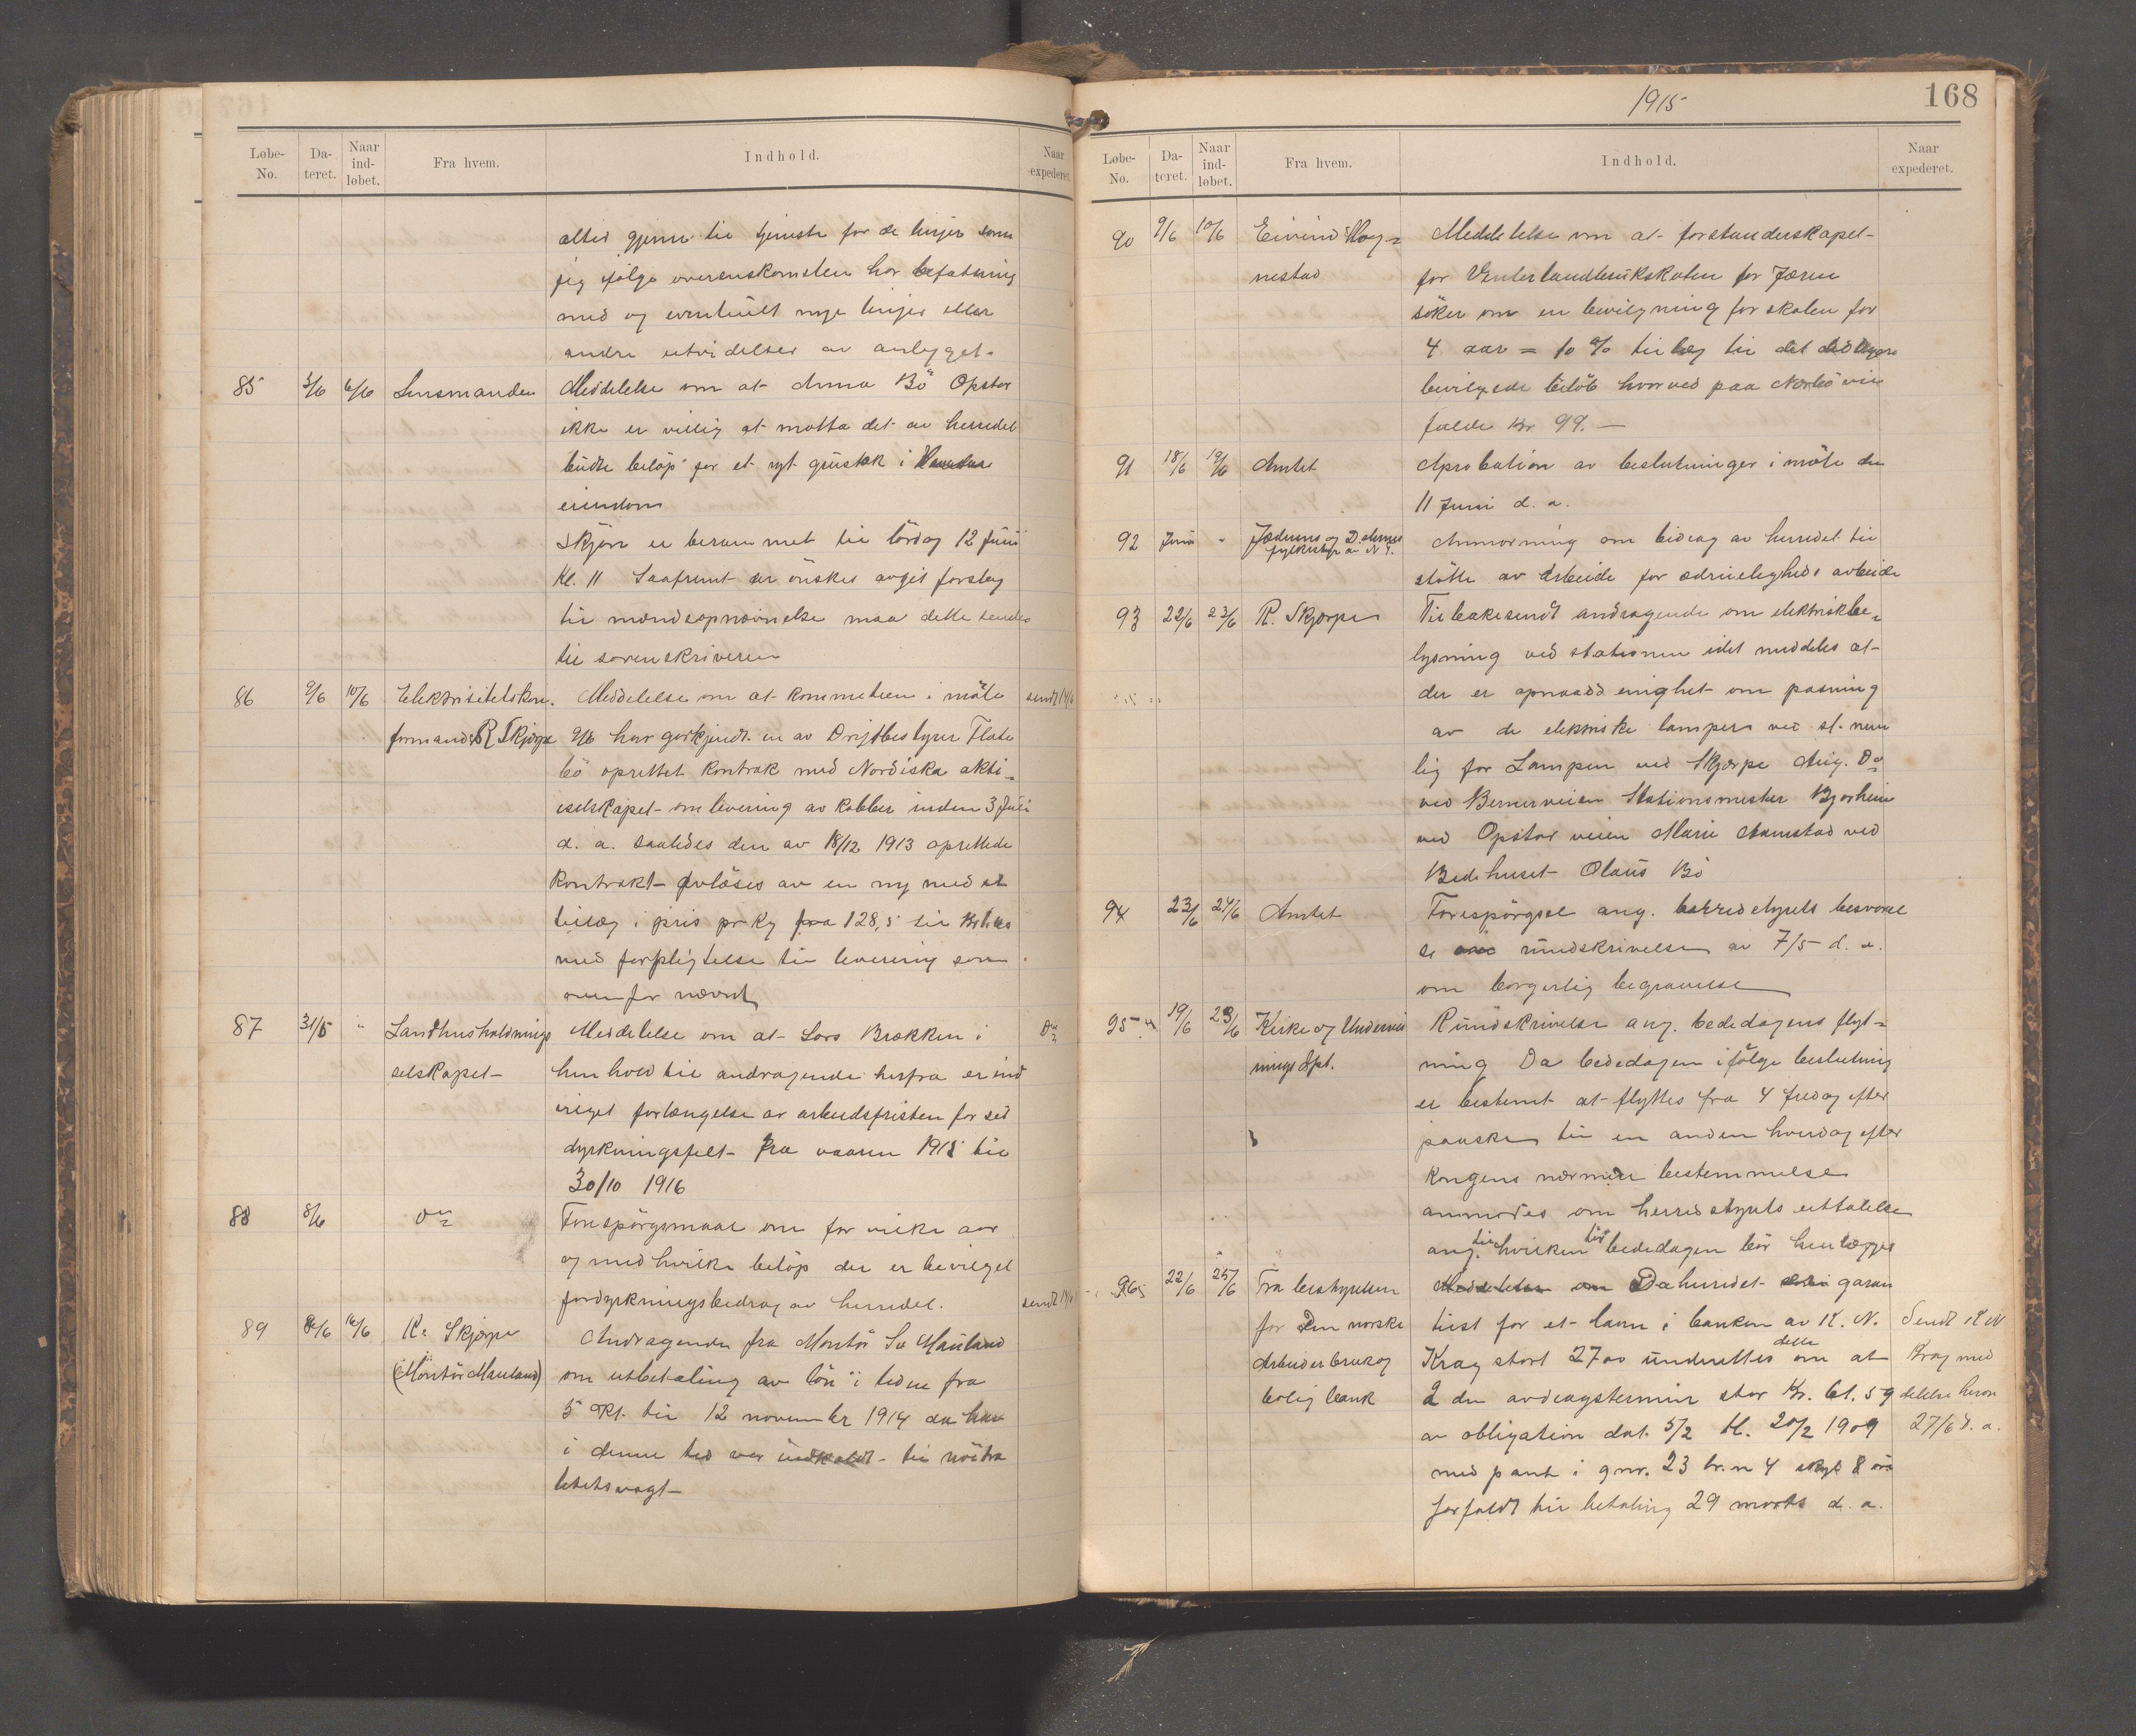 Løbe-No. Da-teret. Naar ind-løbet. Fra hvem. Indhold. Naar expederet.
altid gjerne til tjeneste for de linjer som
jeg ifølge overenskomsten har befatning
med og eventuelt nye linjer eller
andre utvidelser av anlegget.
85 3/6 6/6 Lensmanden Meddelelse om at Anna Bö Opstad
ikke er villig at motta det av herredet
budte beløp for et nyt grustak i
eiendom
Skjøn er berammet til lördag 12 Juni
Kl. 11 Saafremt der önskes avgit forslag
til mændsopnævnelse maa dette sendes
til sorenskriveren
86 9/6 10/6 Elektrisitetskom. Meddelelse om at kommiteen i möte sendt 14/6
formand R Skjærpe 9/6 har godkjendt en av Driftbestyrer Flate
bö oprettet kontrak med Nordiska akti-
eselskapet om levering av kobber inden 3 Juli
d. a. saaledes den av 18/12 1913 oprettede
Kontrakt avlöses av en ny med et
tillæg i pris pr kg fra 128,5 til
med forpligtelse til levering som
ovenfor nævnt
87 31/5 " Landhusholdnings Meddelelse om at Lars Brækken i Do
selskapet henhold til andragende herfra er ind
vilget forlængelse av arbeidsfristen for sit
dyrkningsfelt fra vaaren 1915 til
30/10 1916
88 8/6 Do Forespörgsmaal om for vilke aar
og med hvilke belöp der er bevilget
jorddyrkningsbidrag av herredet. sendt 14/6
89 8/6 10/6 R. Skjærpe Andragende fra Montör Sv Mauland
(Montör Mauland) om utbetaling av lön i tiden fra
5 Okt. til 12 november 1914 da han
i denne tid var indkaldt til nöitra
litetsvagt
1915
168
Løbe-No. Da-teret. Naar ind-løbet. Fra hvem. Indhold. Naar expederet.
90 9/6 10/6 Eivind Hog- Meddelelse om at forstanderskapet
nestad for Vinterlandbruksskolen for Jæren
söker om en bevilgning for skolen for
4 aar = 10 % tillæg til det tidligere
bevilgede belöb hvorved paa Nærbö vil
falde Kr 99. —
91 18/6 19/6 Amtet Aprobation av beslutninger i möte den
11 Juni d. a.
92 Juni " Jæderens og Dalernes Anmodning om bidrag av herredet til
fylkeslag av N T. stötte av arbeide for ædruelighets arbeide
93 22/6 23/6 R. Skjærpe Tilbakesendt andragende om elektriskbe-
lysning ved stationen idet meddeles at
der er opnaadd enighet om pasning
av de elektriske lamper ved st. nem
lig for Lampen ved Skjærpe Aug. Do
ved Bernerveien Stationsmester Bjorheim
ved Opstad veien Marie Aamstad ved
Bedehuset Olaus Bö
94 23/6 24/6 Amtet Forespörgsel ang. herredstyrets besvarel
se rundskrivelse av 7/5 d. a.
om borgerlig begravelse
95 19/6 23/6 Kirke og Undervis Rundskrivelse ang. bededagens flyt-
nings Dpt. ning Da bededagen ifölge beslutning
er bestemt at flyttes fra 4 fredag efter
paaske til en anden hverdag efter
Kongens nærmere bestemmelse
anmodes om herredstyrets uttalelse
ang. til hvilken tid bededagen bör henlægges
96 22/6 25/6 Fra bestyrelsen Meddelelse om Da herredet garan
for Den norske tiest for et laan i banken av K. N. Sendt K N
Arbeiderbruk og Krag stort 2700 underrettes dette om at Krag med
bolig bank 2 den avdragstermin stor Kr. 61.59 delelse herom
av obligation dat. 5/2 tl. 20/2 1909 27/6 d. a.
med pant i gnr. 23 br.n 4 skyld 8 öre
forfaldt til betaling 29 marts d. a.